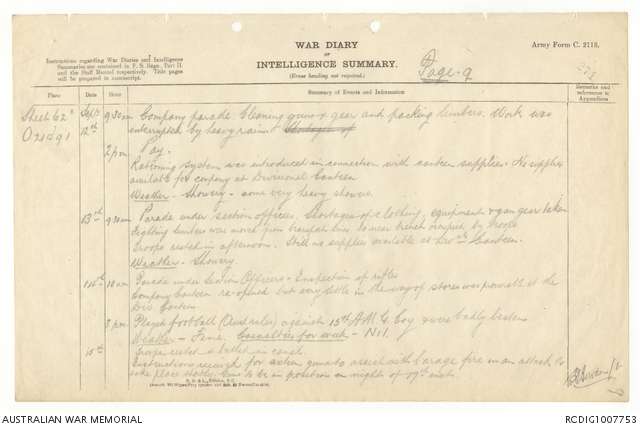 WAR DIARY
OR
INTELLIGENCE SUMMARY.
(Erase heading not required.)
Army Form C. 2118.
Instructions regarding War Diaries and Intelligence
Summaries are contained in F. S. Regs., Part II.
and the Staff Manual respectively. Title pages
will be prepared in manuscript.
Page 9
Place Date Hour Summary of Events and Information Remarks and references to Appendices
Sheet 62D Sept 9.30am Company parade. Cleaning guns & gear and packing limbers. Work was
O21d91 12th interrupted by heavy rain. Shortages of
2pm Pay.
Rationing system was introduced in connection with canteen supplies. No supplies
available for company at Divisional Canteen
Weather - Showery - some very heavy showers
13th 9.30am Parade under section officers. Shortages of clothing, equipment & gun gear taken
Fighting limbers was moved from transport lines to near trench occupied by troops
Troops rested in afternoon. Still no supplies available at Divnl Canteen.
Weather - Showery.
14th 10am Parade under Section Officers - Inspection of rifles
Company Canteen re-opened but very little in the way of stores was procurable at the
Div. Canteen
3pm Played football (Australian) against 13th A.M.G. Coy & were badly beaten
Weather - Fine. Casualties for week - Nil.
15th Troops rested & bathed in
Instructions received for action guns to assist with barrage fire in an attack to
take place shortly. Guns to be in position on night of 17th inst.
AUSTRALIAN WAR MEMORIAL
RCDIG1007753